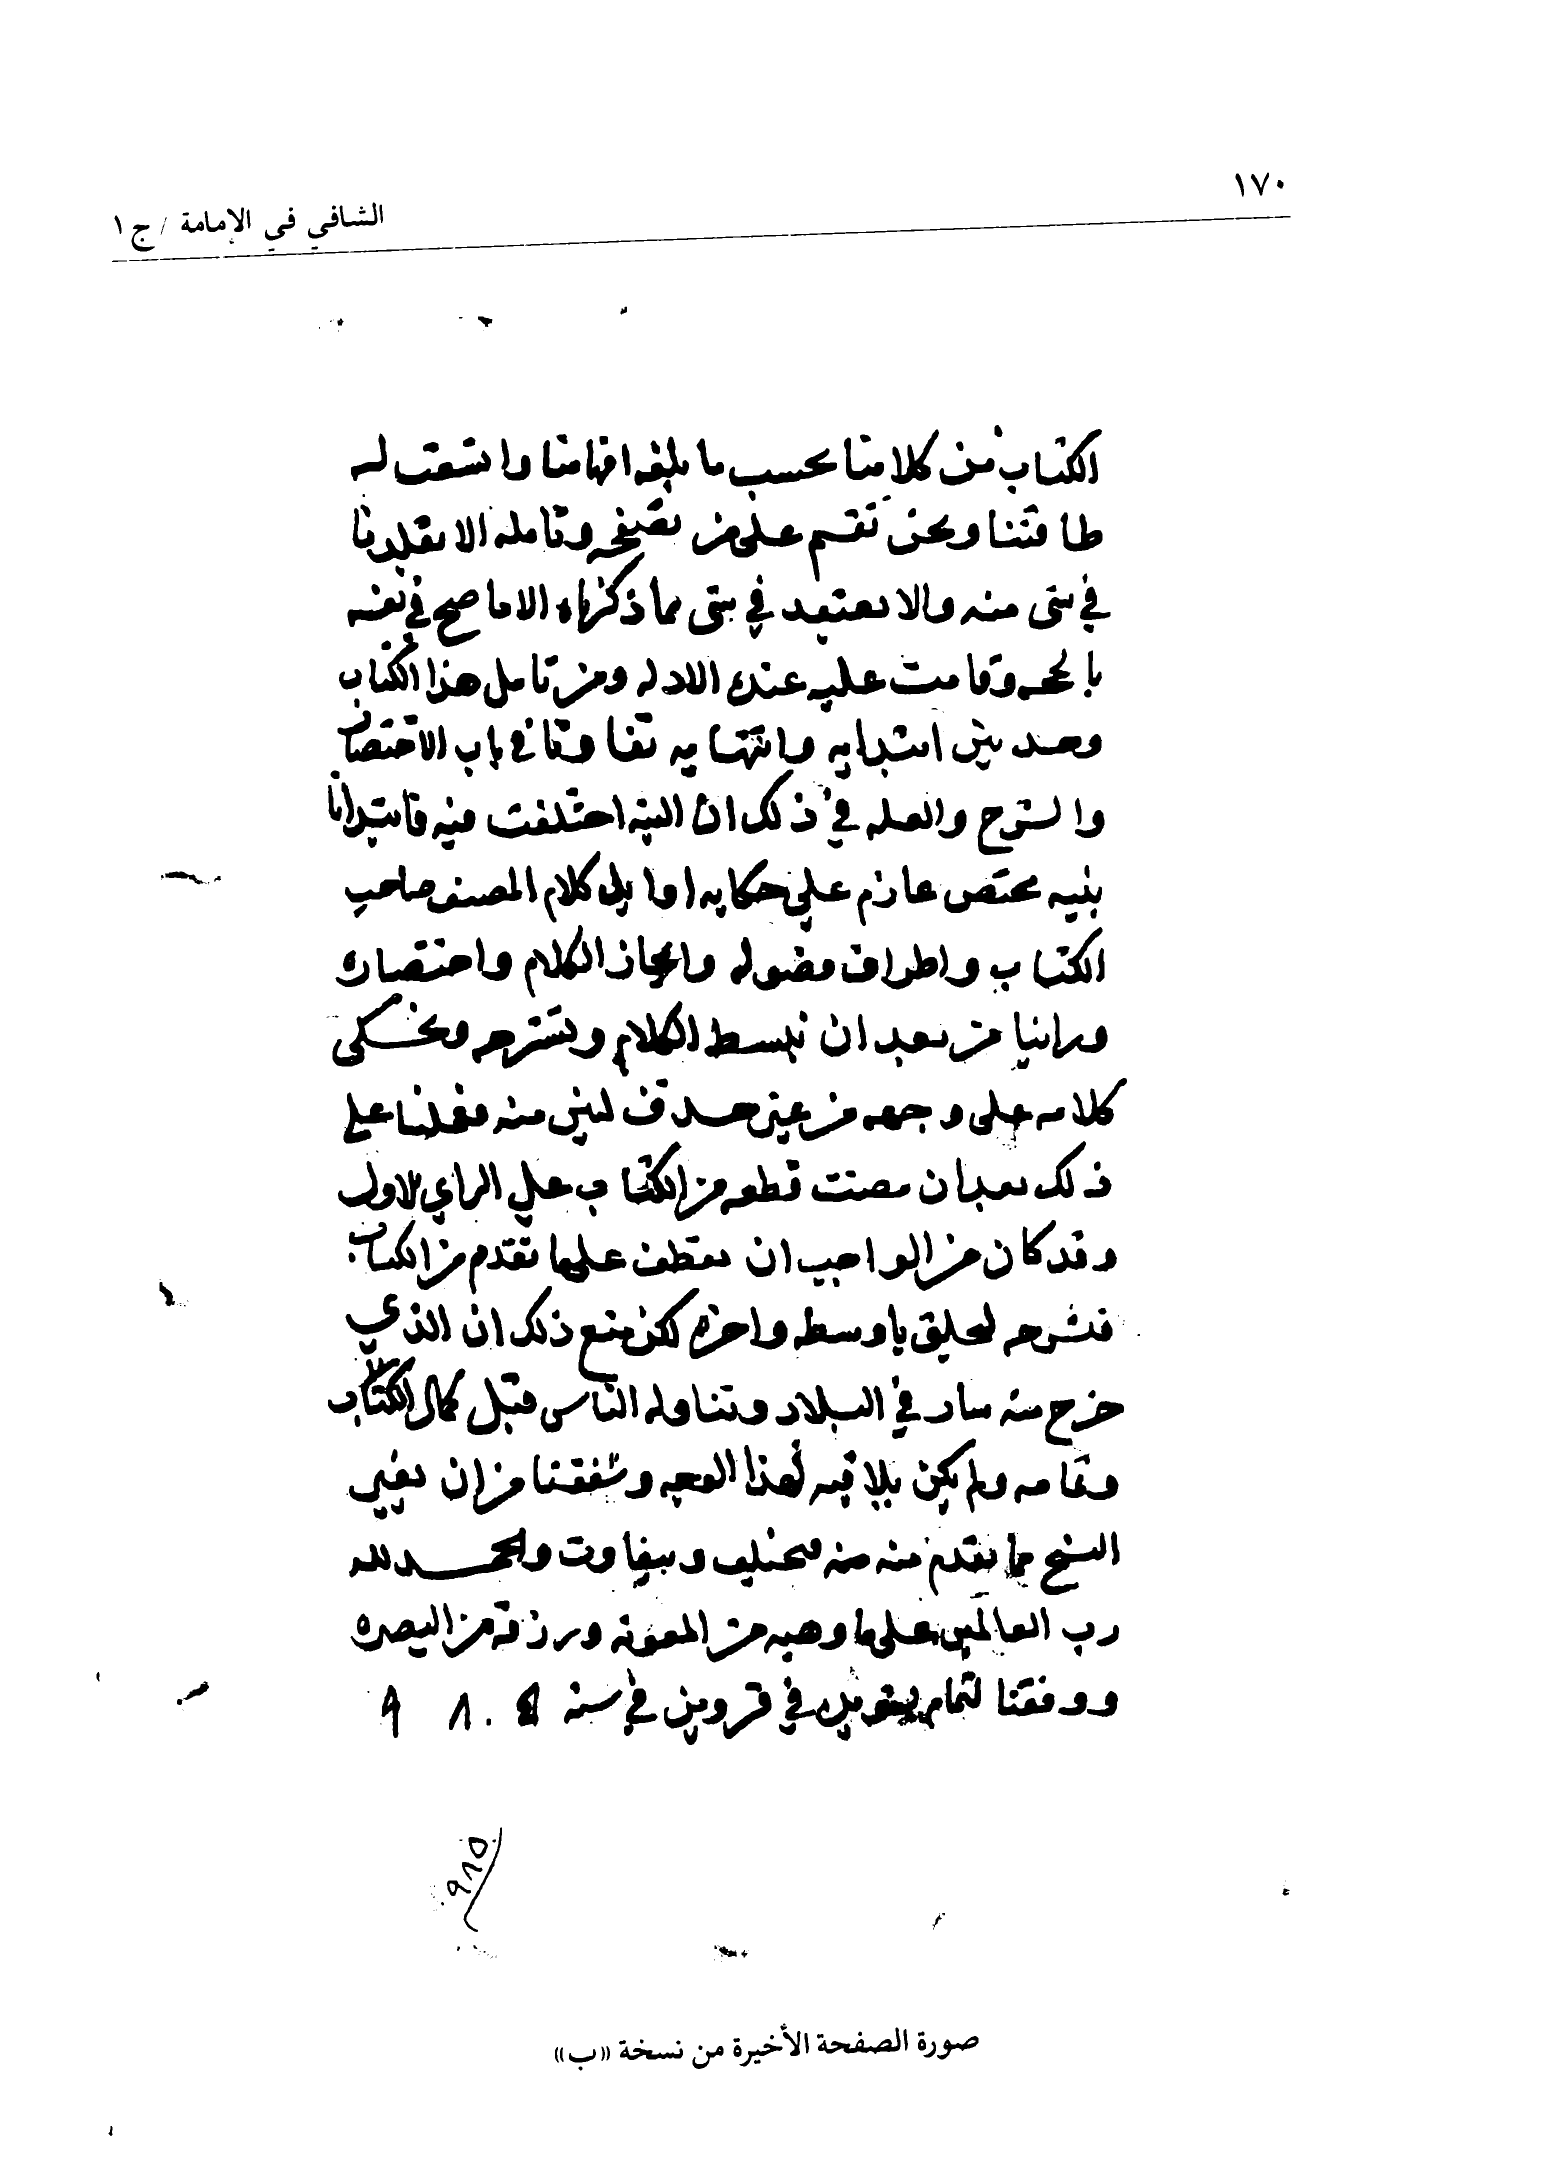 ١٧٠
الشافي في الإمامة / ج ١
الكتاب من كلامنا بحسب ما بلغه افهامنا واتسعت له
طاقتنا ونحن نقسم على من تصفحه وتامله الا يقلدنا
في شي منه والا يعتقد في شي مما ذكرناه الا ما صح في نفسه
بالحجه وقامت عليه عنده الادله ومن تامل هذا الكتاب
وجد بين ابتدايه وانتهايه تفاوتا في باب الاختصار
والشرح والعله في ذلك ان النيه اختلفت فيه فابتدانا
بنيه مختصر عازم علي حكايه اوايل كلام المصنف صاحب
الكتاب واطراف فصوله وايجاز الكلام واختصاره
وراينا من بعد ان نبسط الكلام ونشرحه ونحكى
كلامه على وجهه من غير حذف لشي منه فعلنا علي
ذلك بعد ان مضت قطعه من الكتاب علي الراي الاول
وقد كان من الواجب ان نعطف على ما تقدم من الكتاب
فنشرحه ليليق باوسطه واخره لكن منع ذلك ان الذي
خرج منه سار في البلاد وتناوله الناس قبل كمال الكتاب
وتمامه ولم يكن تلافيه لهذا الوجه وشفقنا من ان تبقي
النسخ مما تقدم منه فتختلف وتتفاوت والحمد لله
رب العالمين على ما وهبه من المعونه ورزقه من البصره
ووفقنا لتمام في قزوين في سنه
٩٨٥
صورة الصفحة الأخيرة من نسخة «ب»